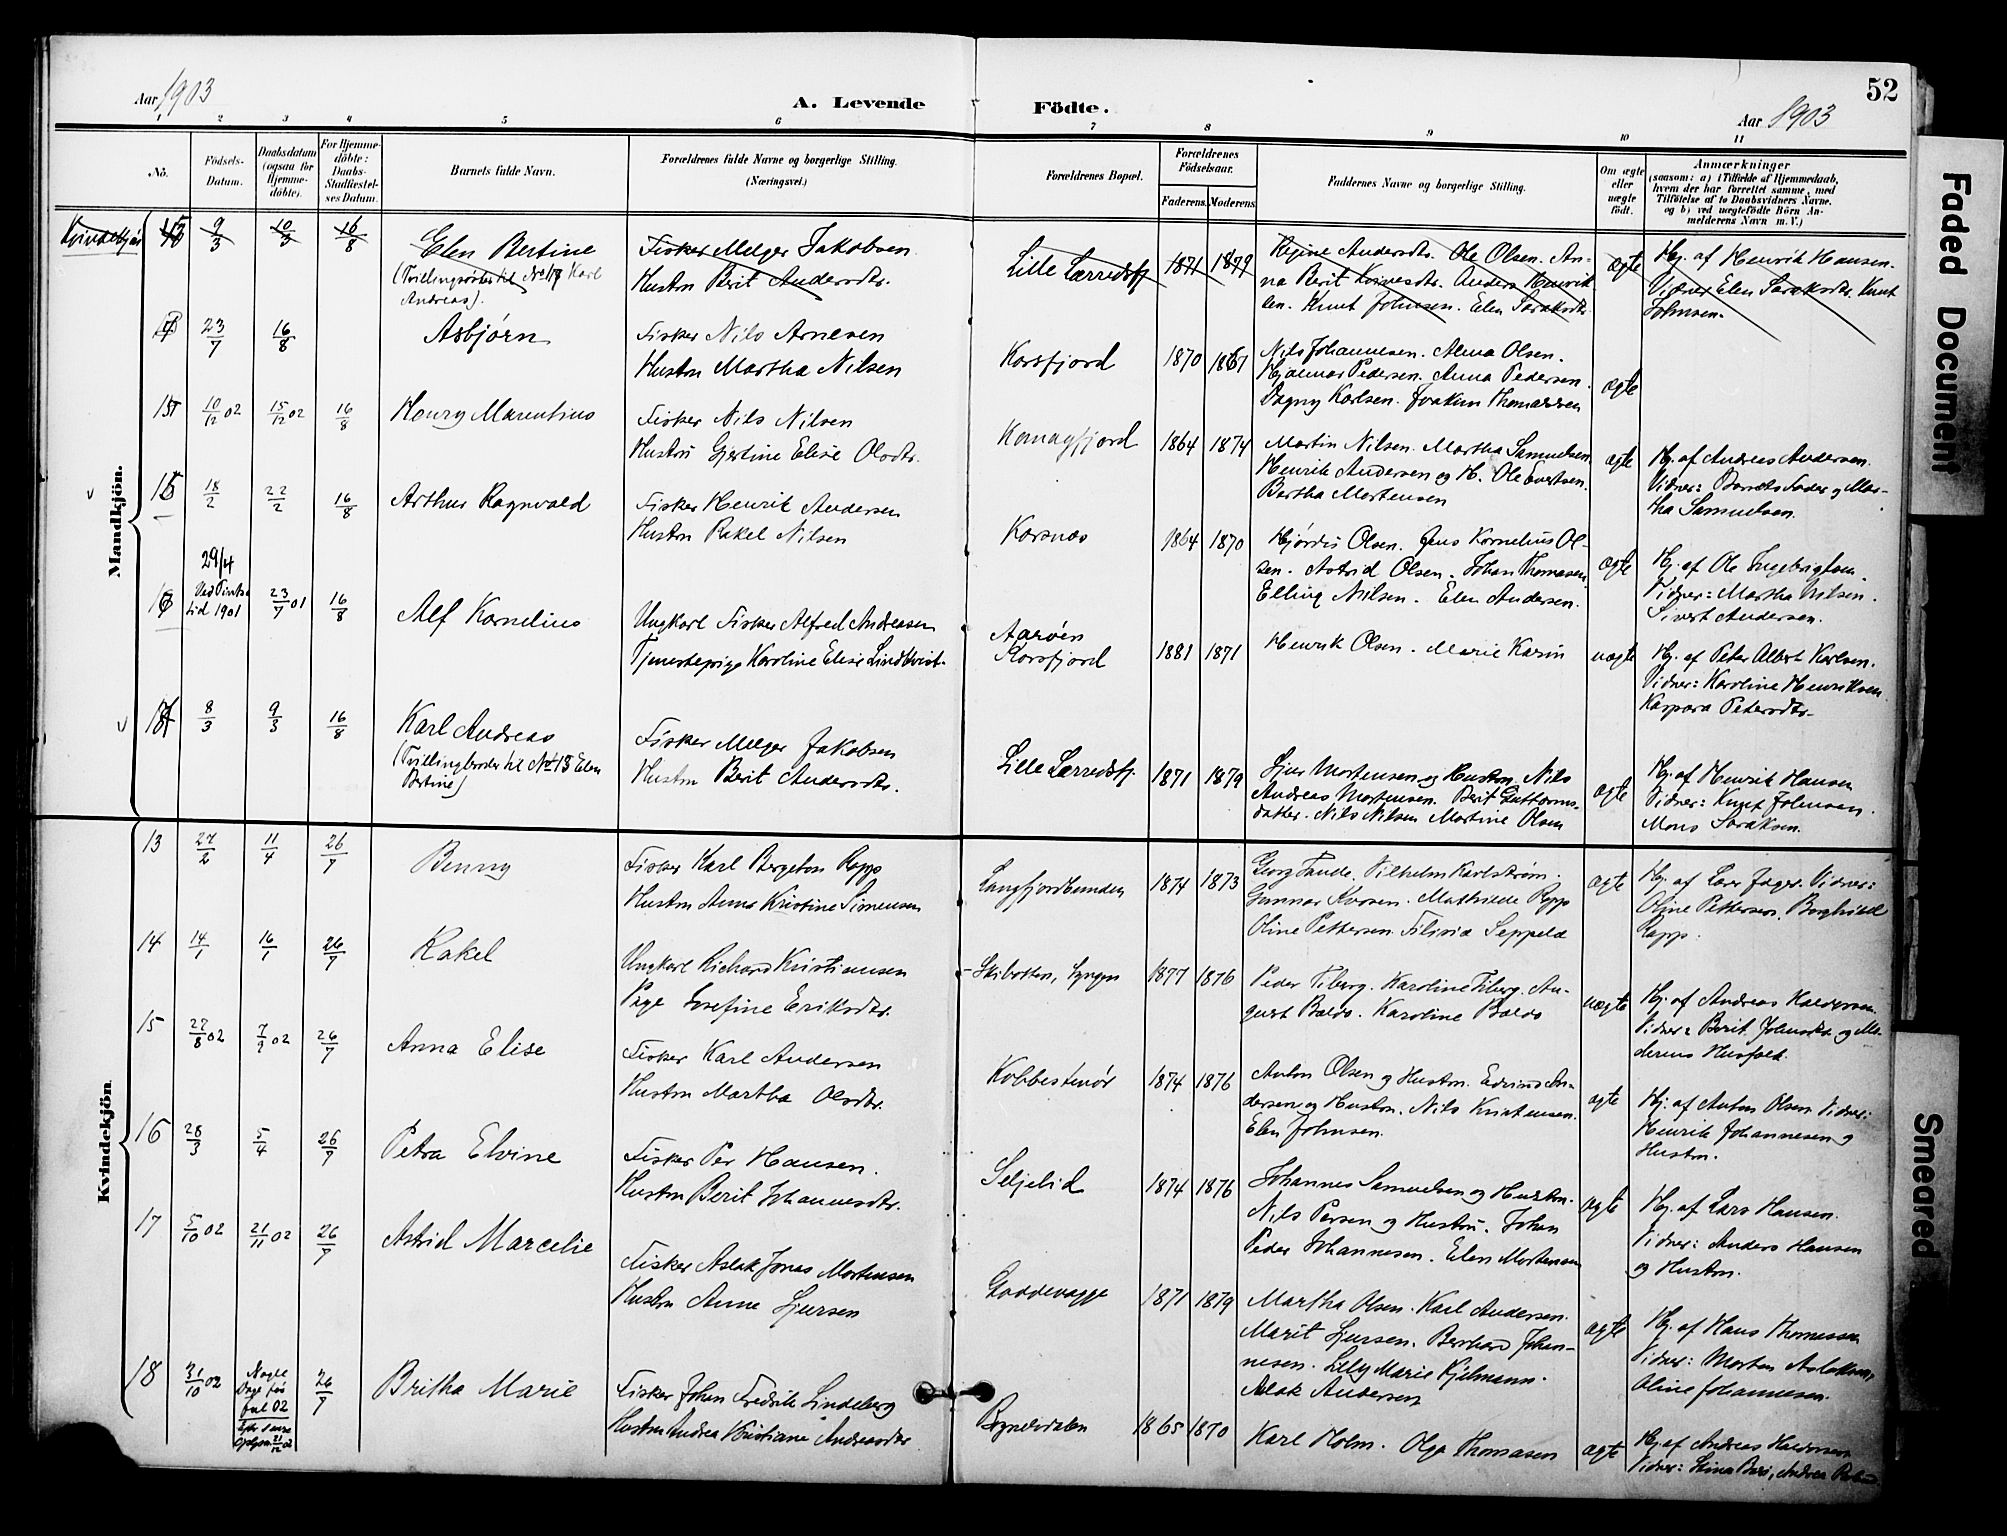 52
Aar 1903
A. Levende Födte.
Aar 1903
1 2 3 4 5 6 7 8 9 10 11
No.
Födsels-Datum.
Daabsdatum (ogsaa for Hjemmedöbte).
For Hjemmedöbte: Daabs-Stadfæstelses Datum.
Barnets fulde Navn.
Forældrenes fulde Navne og borgerlige Stilling. (Næringsvei.)
Forældrenes Bopæl.
Forældrenes Födselsaar.
Faderens. Moderens.
Faddernes Navne og borgerlige Stilling.
Om ægte eller uægte födt.
Anmærkninger
(saasom: a) i Tilfælde af Hjemmedaab, hvem der har forrettet samme, med Tilföielse af to Daabsvidners Navne, og b) ved uægtefödte Börn Anmelderens Navn m. V.)
Kvindekjøn
9/3 10/3 16/8
Elen Bertine
(Tvillingsøster til No 18 Karl
Andreas).
Fisker Melger Jakobsen
Hustru Berit Andersdtr.
Lille Lærredsfj. 1871 1879
Regine Andersdtr. Ole Olsen. An-
na Berit Knivesdtr. Anders Henrik-
sen. Knut Johnsen. Elen Saraksdtr.
ægte
Hj. af Henrik Hansen.
Vidner Elen Saraksdtr. Knut
Johnsen.
Mandkjön.
23/7 16/8
Asbjørn
Fisker Nils Arnesen
Hustru Martha Nilsen
Korsfjord 1870 1861
Nils Johannesen. Alma Olsen.
Hjalmar Pedersen. Anna Pedersen.
Dagny Karlsen. Joakim Thomassen
ægte
15 10/12 02 15/12 02 16/8
Henry Marentius
Fisker Nils Nilsen
Hustru Gjertine Elise Olsdtr.
Komagfjord 1864 1874
Martin Nilsen. Martha Samuelsen
Henrik Andersen og H. Ole Evertsen.
Bertha Mortensen
ægte
Hj. af Andreas Andersen.
Vidner: Barnets Fader og Mar-
tha Samuelsen.
18/2 22/2 16/8
Arthur Ragnvald
Fisker Henrik Andersen
Hustru Rakel Nilsen
Korsnes 1864 1870
Hjørdis Olsen. Jens Kornelius Ol-
sen. Astrid Olsen. Johan Thomasen.
Elling Nilsen. Elen Andersen.
ægte
Hj. af Ole Ingebrigtsen.
Vidner: Martha Nilsen.
Sivert Andersen.
29/4
Ved Pintse-
tid 1901
23/7 01 16/8
Alf Kornelius
Ungkarl Fisker Alfred Andreasen
Tjenestepige Karoline Elise Lindkvist.
Aarøen
Korsfjord 1881 1871
Henrik Olsen. Marie Karin
uægte
Hj. af Peter Albert Karlsen.
Vidner: Karoline Henriksen
Kaspara Petersdtr.
8/3 9/3 16/8
Karl Andreas
(Tvillingbroder til No 13 Elen
Bertine)
Fisker Melger Jakobsen
Hustru Berit Andersdtr.
Lille Lærredsfj. 1871 1879
Ljur Mortensen og Hustru. Nils
Andreas Mortensen. Berit Guttorms-
datter. Nils Nilsen Martine Olsen
ægte
Hj. af Henrik Hansen
Vidner: Knut Johnsen.
Mons Saraksen.
Kvindekjön.
13 27/2 11/4 26/7
Benny
Fisker Karl Bergeton Rapp
Hustru Anna Kristine Simensen
Langfjordbunden 1874 1873
Georg Tande. Vilhelm Karlstrøm.
Gunnar Kvosen. Mathilde Rapp
Oline Pettersen. Filivia Seppelæ
ægte
Hj. af Lærer Jager. Vidner:
Oline Pettersen. Borghild
Rapp.
14 14/1 16/1 26/7
Rakel
Ungkarl Richard Kristiansen
Pige Josefine Eriksdtr.
Skibotten, Lyngen 1877 1876
Peder Fiberg. Karoline Fiberg. Au-
gust Baldo. Karoline Baldo
uægte
Hj. af Andreas Haldorsen
Vidner: Berit Johnsdtr. og Mo-
derens Husfolk.
15 27/8 02 7/9 02 26/7
Anna Elise
Fisker Karl Andersen
Hustru Martha Olsdtr.
Kobbestenør 1874 1876
Anton Olsen og Hustru. Edvind An-
dersen og Hustru. Nils Kristensen.
Elen Johnsen.
ægte
Hj. af Anton Olsen Vidner:
Henrik Johannesen og
Hustru.
16 28/3 5/4 26/7
Petra Elvine
Fisker Per Hansen.
Hustru Berit Johannesdtr.
Seljelid 1874 1876
Johannes Samuelsen og Hustru.
Nils Persen og Hustru. Johan
Peder Johannesen. Elen Mortensen
ægte
Hj. af Lars Hansen.
Vidner: Anders Hansen
og Hustru.
17 5/10 02 21/11 02 26/7
Astrid Marcelie
Fisker Aslak Jonas Mortensen
Hustru Anne Ljursen
Goddevagge 1871 1879
Martha Olsen. Karl Andersen.
Marit Ljursen. Berhard Johan-
nesen. Lilly Marie Kjelmann.
Aslak Andersen
ægte
Hj. af Hans Thomassen
Vidner: Morten Aslaksen,
Oline Johannesen.
18 31/10 02
Nogle
Dage før
Jul 02
21/12 02
26/7
Britha Marie
Fisker Johan Fredrik Lindeberg
Hustru Andrea Kristiane Andreasdtr
Rognesdalen 1865 1870
Karl Holm. Olga Thomasen
ægte
Hj. af Andreas Haldorsen
Vidner: Stina Beri, Andrea
Faded Document
Smeared